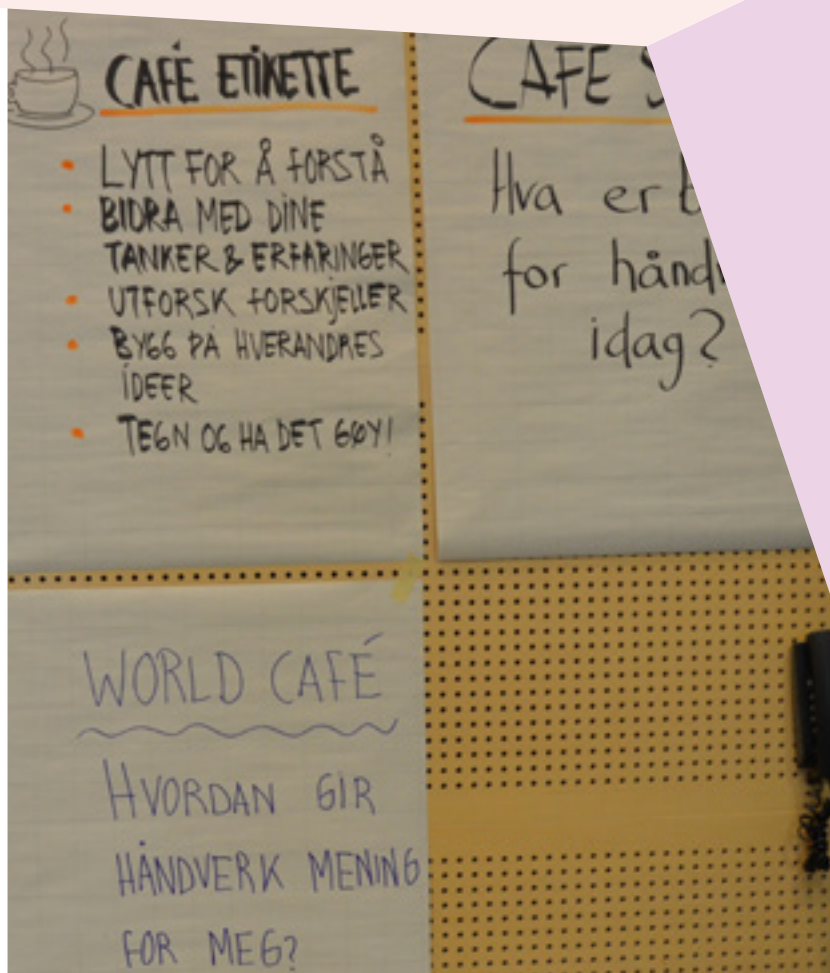 CAFÉ ETIKETTE
LYTT FOR Å FORSTÅ
BIDRA MED DINE
TANKER & ERFARINGER
UTFORSK FORSKJELLER
BYGG PÅ HVERANDRES
IDEER
TEGN OG HA DET GØY!
CAFE
Hva er
for
idag?
WORLD CAFÉ
HVORDAN GIR
HÅNDVERK MENING
FOR MEG?